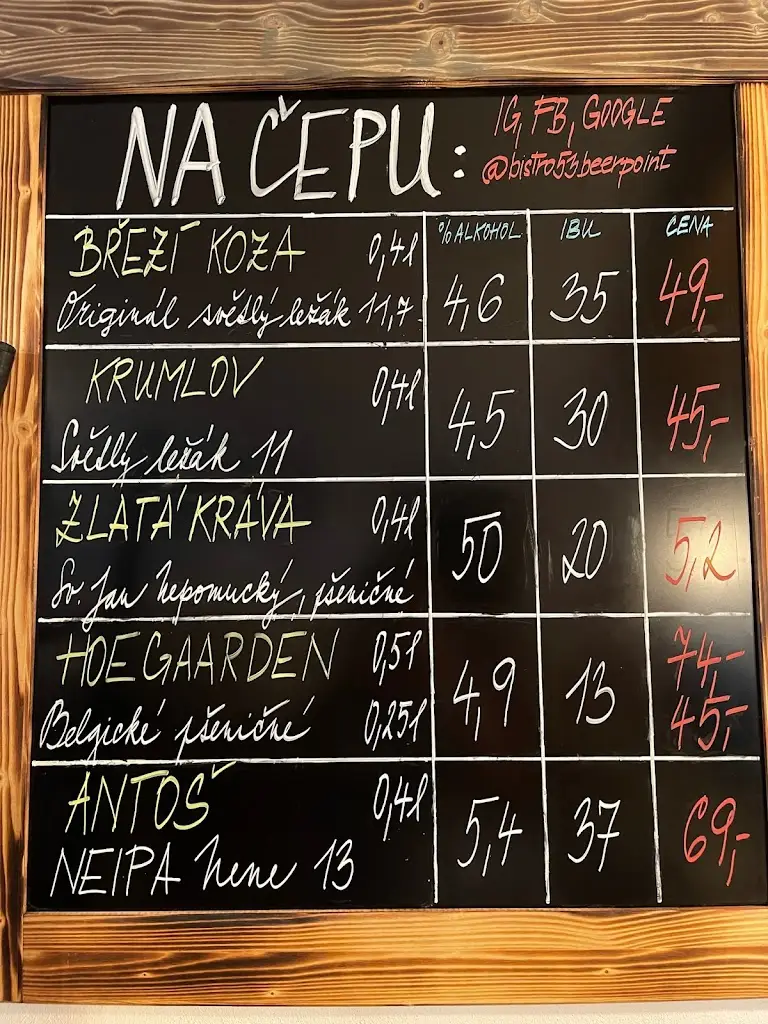 NA ČEPU:
IG, FB, GOOGLE
@bistro53beerpoint
% ALKOHOL IBU CENA
BŘEZÍ KOZA 0,4l
Originál světlý ležák 11,7 4,6 35 49,-
KRUMLOV 0,4l
Světlý ležák 11 4,5 30 45,-
ZLATÁ KRÁVA 0,4l
Sv. Jan Nepomucký, pšeničné 50 20 5,2
HOEGAARDEN 0,5l 74,-
Belgické pšeničné 0,25l 4,9 13 45,-
ANTOŠ 0,4l
NEIPA Nene 13 5,4 37 69,-